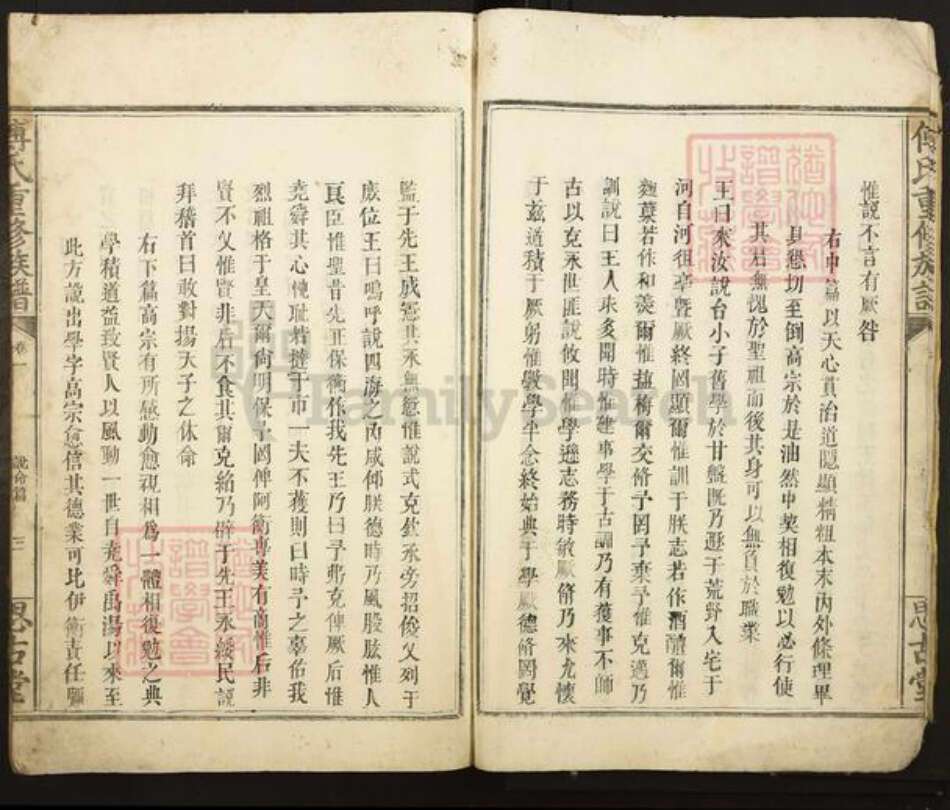 惟說不言有厥咎
右中篇以天心貫治道隱顯精粗本末內外條理畢
具懇切至到高宗於是油然中契相復勉以必行使
其君無愧於聖祖而後其身可以無負於職業
王曰來汝說台小子舊學於甘盤既乃遯于荒野入宅于
河自河徂亳暨厥終罔顯爾惟訓于朕志若作酒醴爾惟
麴糵若作和羹爾惟鹽梅爾交脩予罔予棄予惟克邁乃
訓說曰王人求多聞時惟建事學于古訓乃有獲事不師
古以克永世匪說攸聞惟學遜志務時敏厥脩乃來允懷
于茲道積于厥躬惟斆學半念終始典于學厥德脩罔覺
監于先王成憲其永無愆惟說式克欽承旁招俊乂列于
庶位王曰嗚呼說四海之內咸仰朕德時乃風股肱惟人
良臣惟聖昔先正保衡作我先王乃曰予弗克俾厥后惟
堯舜其心愧恥若撻于市一夫不獲則曰時予之辜佑我
烈祖格于皇天爾尚明保予罔俾阿衡專美有商惟后非
賢不乂惟賢非后不食其爾克紹乃辟于先王永綏民說
拜稽首曰敢對揚天子之休命
右下篇高宗有所感動愈親相為一體相復勉之典
學積道益致賢人以風動一世自堯舜禹湯以來至
此方說出學字高宗愈信其德業可比伊衡責任彌
傅氏重修族譜
卷一
說命篇
三
思古堂
傅氏重修族譜
思古堂
FamilySearch